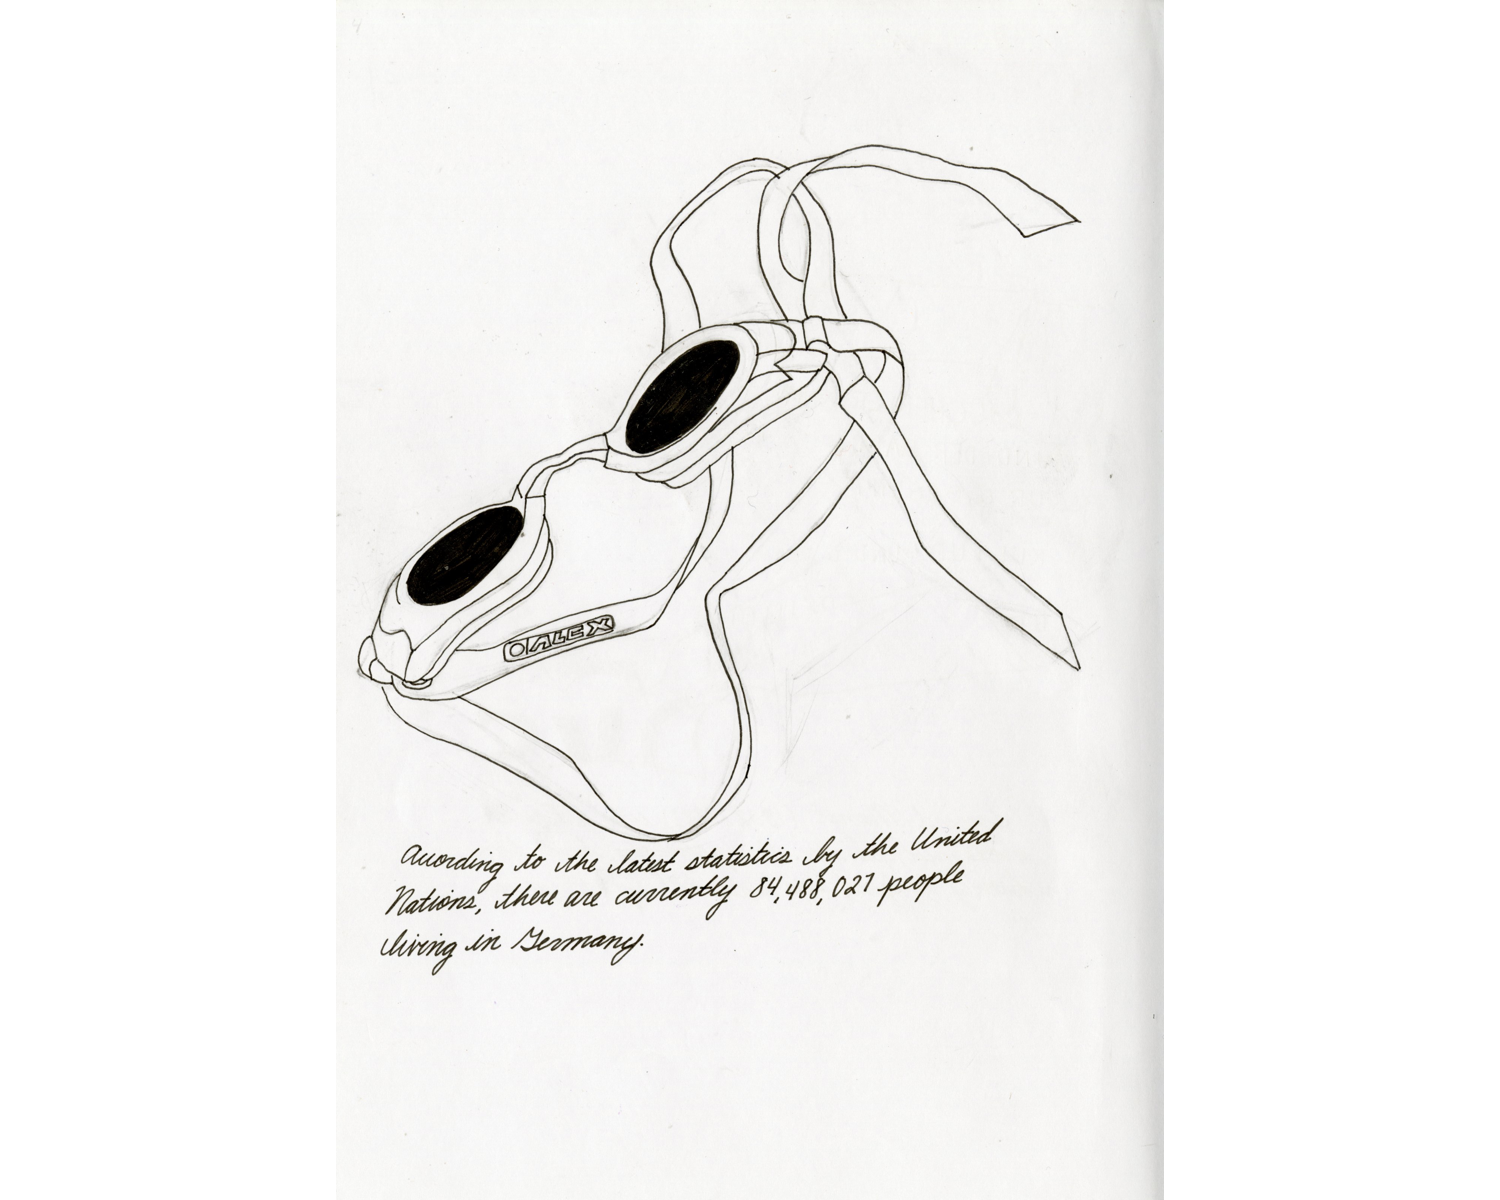 ALEX
According to the latest statistics by the United
Nations, there are currently 84,488,027 people
living in Germany.